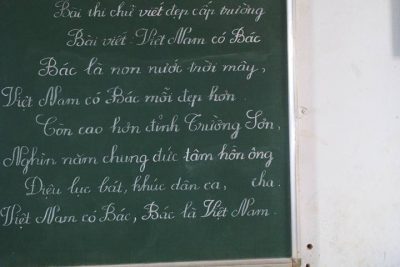 Bài thi chữ viết đẹp cấp trường
Bài viết: Việt Nam có Bác
Bác là non nước trời mây,
Việt Nam có Bác mỗi đẹp hơn.
Còn cao hơn đỉnh Trường Sơn,
Nghìn năm chung đúc tâm hồn ông
Diệu lục bát, khúc dân ca, cha.
Việt Nam có Bác, Bác là Việt Nam.